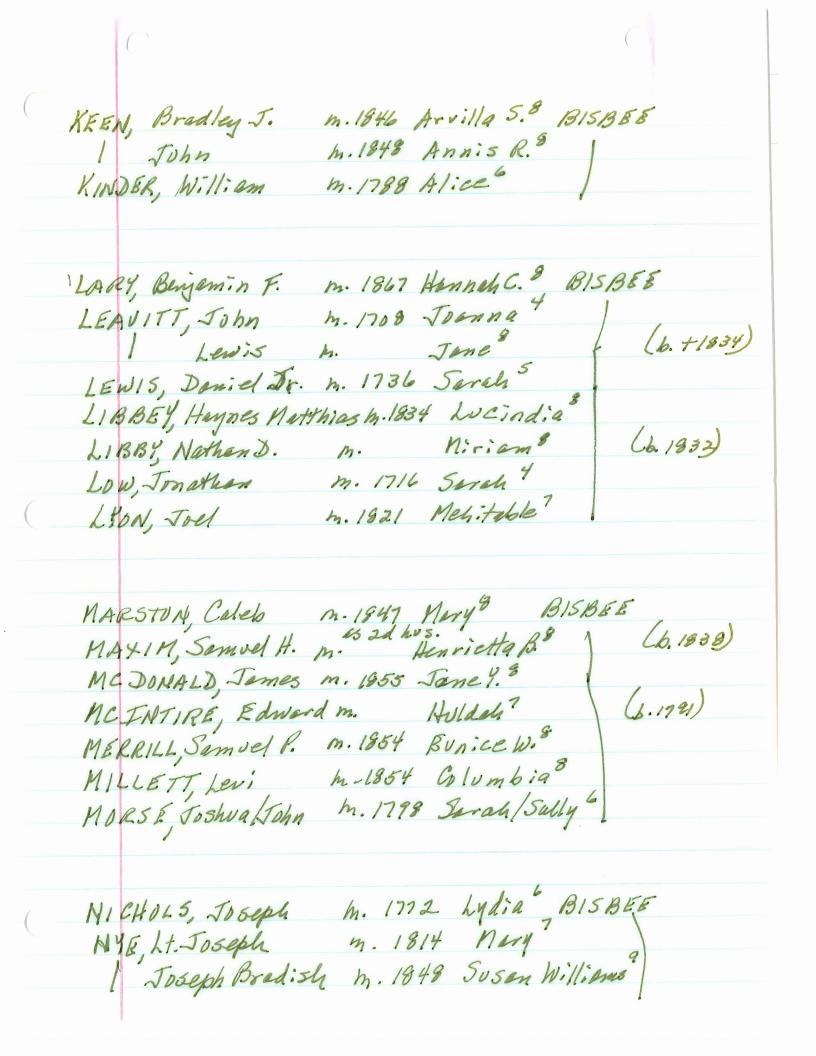 KEEN, Bradley J. m. 1846 Arvilla S.⁸ BISBEE
| John m. 1848 Annis R.⁸
KINDER, William m. 1788 Alice⁶
LARY, Benjamin F. m. 1867 Hannah C.⁸ BISBEE
LEAVITT, John m. 1708 Joanna⁴
| Lewis m. Jane⁸ (b. +1834)
LEWIS, Daniel Jr. m. 1736 Sarah⁵
LIBBEY, Haynes Matthias m. 1834 Lucindia⁸
LIBBY, Nathan D. m. Miriam⁸ (b. 1832)
LOW, Jonathan m. 1716 Sarah⁴
LYON, Joel m. 1821 Mehitable⁷
MARSTON, Caleb m. 1847 Mary⁸ BISBEE
MAXIM, Samuel H. m. as 2d hus. Henrietta B.⁸ (b. 1838)
MCDONALD, James m. 1855 Jane Y.⁸
MCINTIRE, Edward m. Huldah⁷ (b. 1791)
MERRILL, Samuel P. m. 1854 Eunice W.⁸
MILLETT, Levi m. 1854 Columbia⁸
MORSE, Joshua/John m. 1798 Sarah/Sally⁶
NICHOLS, Joseph m. 1772 Lydia⁶ BISBEE
NYE, Lt. Joseph m. 1814 Mary⁷
| Joseph Bradish m. 1848 Susan Williams⁹